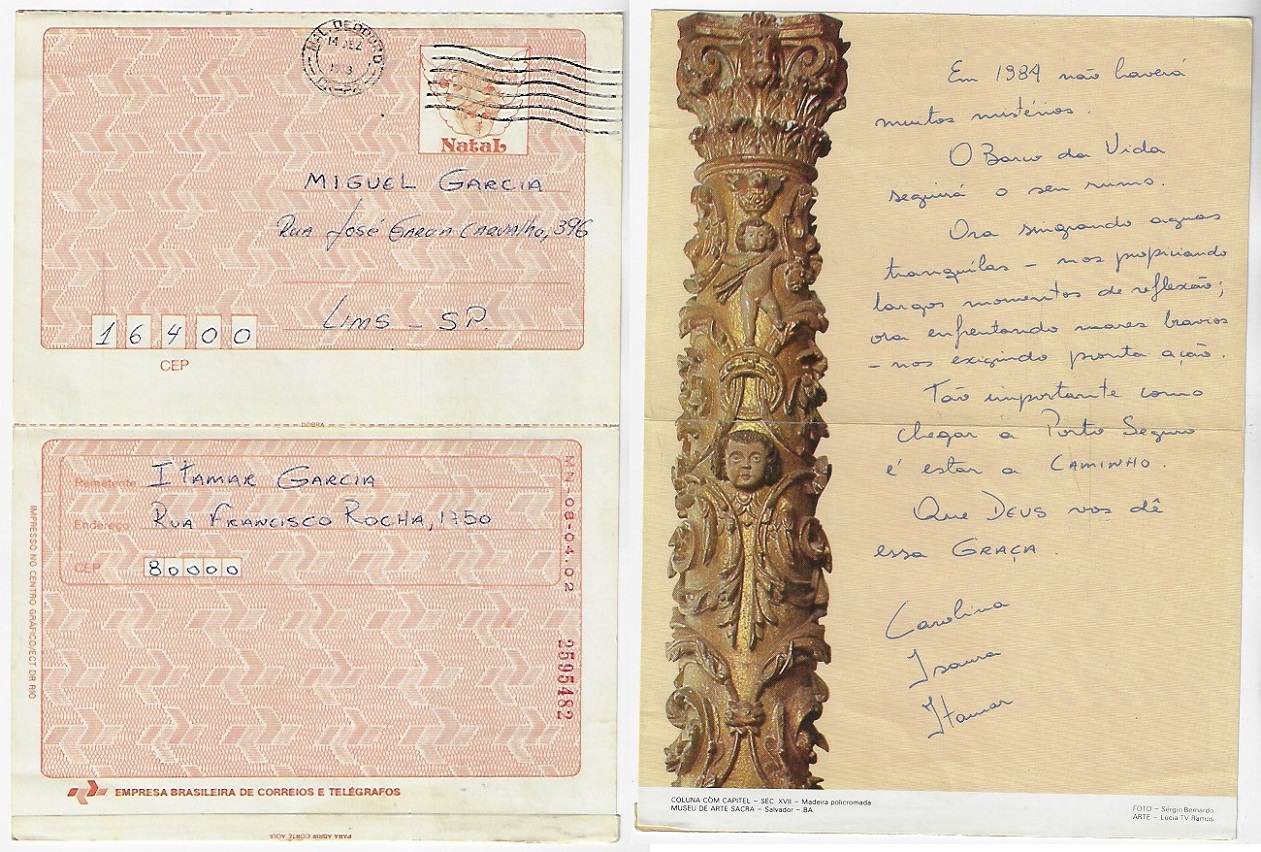 MAL. DEODORO
14 DEZ
1983
NataL
MIGUEL GARCIA
RUA JOSÉ GARCIA CARVALHO, 396
LINS - SP.
16400
CEP
DOBRA
Remetente ITAMAR GARCIA
Endereço RUA FRANCISCO ROCHA, 1750
CEP 80000
MN-08-04.02
2595482
IMPRESSO NO CENTRO GRÁFICO/ECT DR RIO
EMPRESA BRASILEIRA DE CORREIOS E TELÉGRAFOS
PARA ABRIR CORTE AQUI
Em 1984 não haverá
muitos mistérios.
O Barco da Vida
seguirá o seu rumo.
Ora singrando aguas
tranquilas - nos propiciando
largos momentos de reflexão;
ora enfrentando mares bravios
- nos exigindo pronta ação.
Tão importante como
chegar a Porto Seguro
é estar a CAMINHO.
Que DEUS nos dê
essa GRAÇA.
Carolina
Isaura
Itamar
COLUNA COM CAPITEL - SEC. XVII - Madeira policromada
MUSEU DE ARTE SACRA - Salvador - BA.
FOTO - Sérgio Bernardo
ARTE - Lúcia TV Ramos